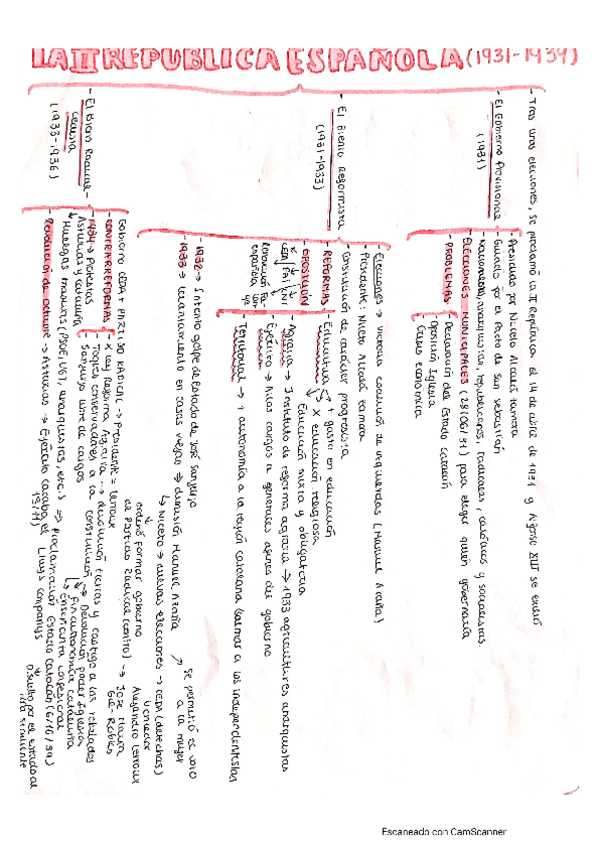 LA II REPUBLICA ESPAÑOLA (1931-1939)
- Tras unas elecciones, se proclamó la II República el 14 de abril de 1931 y Alfonso XIII se exilió
- El Gobierno Provisional (1931)
- Presidido por Niceto Alcalá Zamora
- Guiado por el Pacto de San Sebastián
Nacionalistas, anarquistas, republicanos, radicales, católicos y socialistas.
- ELECCIONES MUNICIPALES (28/06/31) para elegir quién gobernaría
- PROBLEMAS
- Declaración del Estado catalán
- Oposición Iglesia
- Crisis económica
- El Bienio Reformista
(1931-1933)
- Elecciones → victoria coalición de izquierdas (Manuel Azaña)
- Presidente: Niceto Alcalá Zamora
- Constitución de carácter progresista
- REFORMAS
- Educativa → + gasto en educación
X educación religiosa
Educación mixta y obligatoria
- Agraria → Instituto de reforma agraria → 1933 agricultores anarquistas
- Ejército → Altos cargos a generales afines del gobierno
- Territorial → + autonomía a la región catalana (calmar a los independentistas)
- OPOSICIÓN
CEDA FAI CNT
Renovación Española
- 1932 → Intento golpe de Estado de José Sanjurjo
- 1933 → Levantamiento en Casas Viejas → dimisión Manuel Azaña
→ Niceto → nuevas elecciones → CEDA (derechas)
Se permitió el voto a la mujer
ordenó formar gobierno
de Partido Radical (centro) →
José María Gil-Robles
Vencedor
Alejandro Lerroux
- El Bienio Radical-
cedista
(1933-1936)
Gobierno CEDA + PARTIDO RADICAL → Presidente = Lerroux
- CONTRARREFORMAS
- X Ley Reforma Agraria → devolución tierras y castigo a los rebelados
- Toques conservadores a la constitución → Devolución poder Iglesia
Fin autonomía Catalunya
Enseñanza confesional
Sanjurjo libre de cargos
- 1934 → Protestas
Asturias y Cataluña
Huelgas masivas (PSOE, UGT, anarquistas, etc.) → Proclamación Estado Catalán (6/10/34)
Lluís Companys
- Revolución de octubre → Asturias → Ejército acababa el
19/11
Disuelto por el Estado al
día siguiente
Escaneado con CamScanner